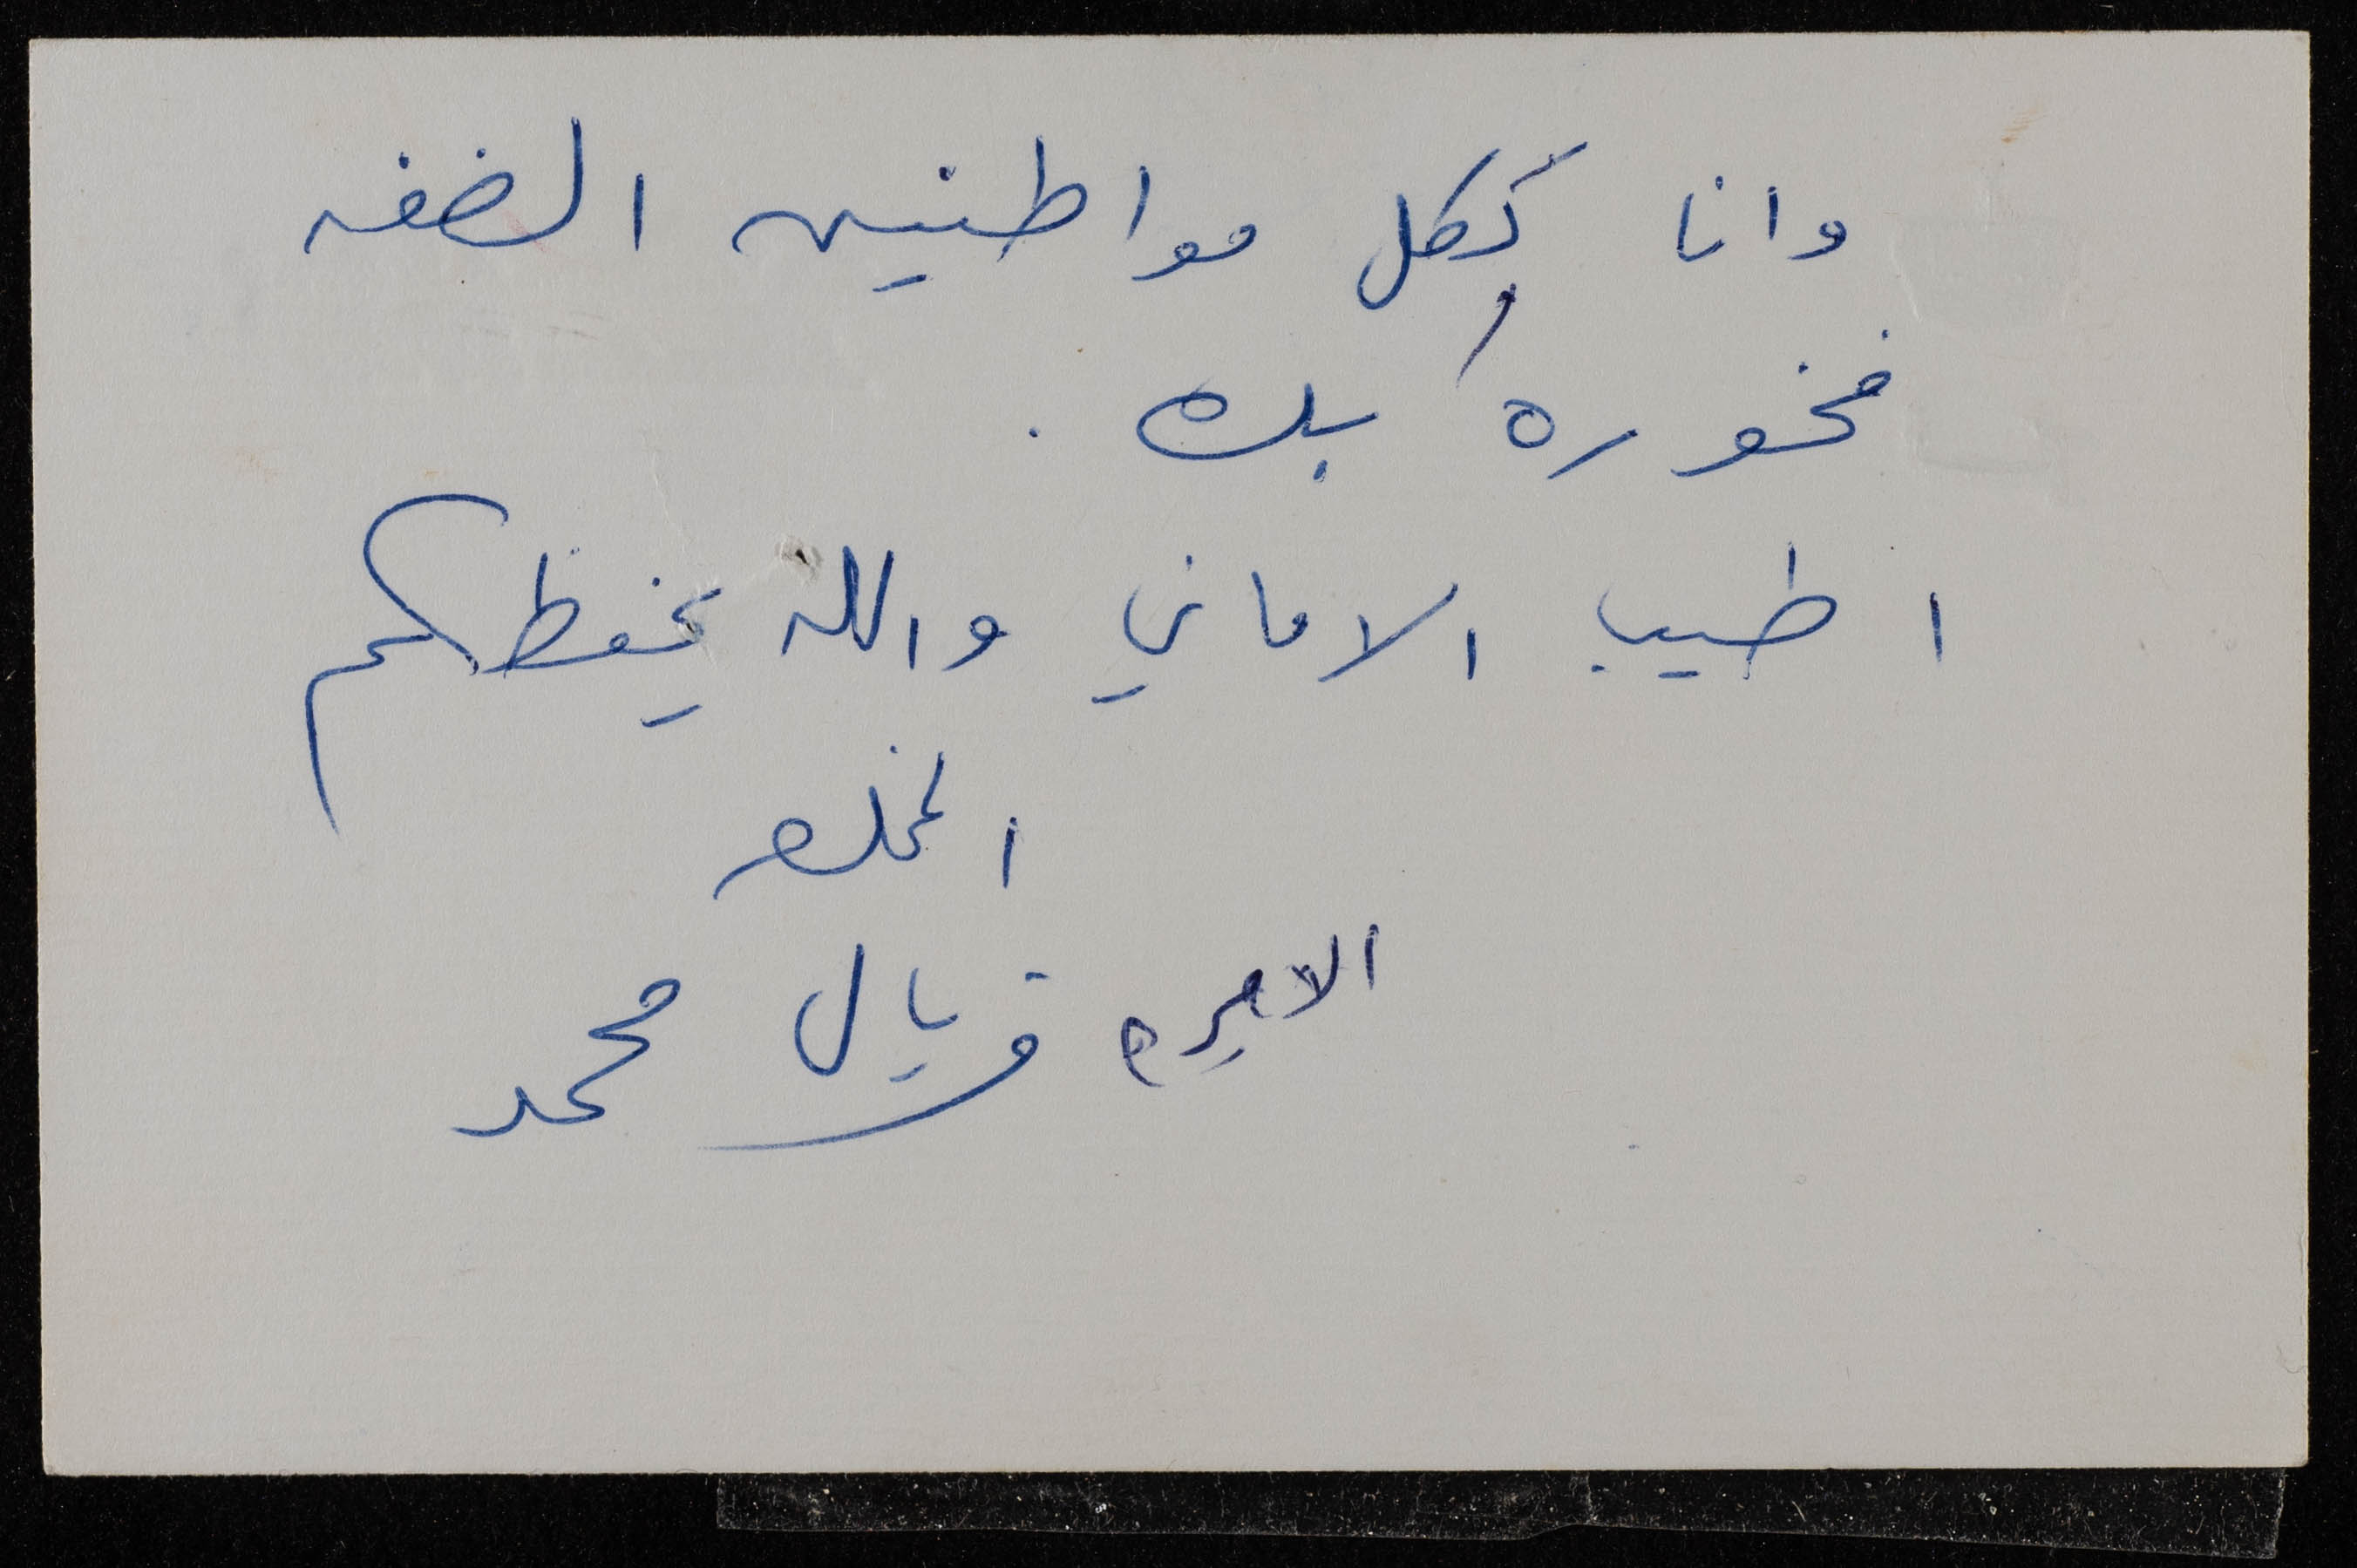 وانا ككل مواطنين الضفه
فخوره بك .
اطيب الاماني والله يحفظكم
المخلصه
الاميره فريال محمد